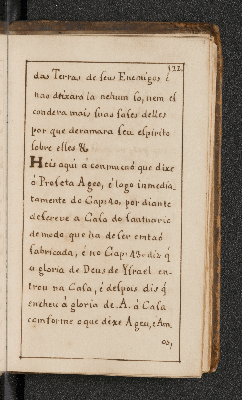 122
das Terras de seus Enemigos é
nao deixará la nehum so, nem el
condera mais suas fases delles
por que deramara seu espirito
sobre elles &
Heis aqui á conmucaõ que dixe
o Profeta Ageo, é logo inmedia-
tamente do Cap: 40, por diante
descreve a Casa do santuario
de modo que ha de ser emtaõ
fabricada, é no Cap: 43 diz q̃
a gloria de Deus de Ysrael en-
trou na Casa, é despois dis q̃
encheu á gloria de .A. á Casa
comforme o que dixe Ageu, é Am
os,